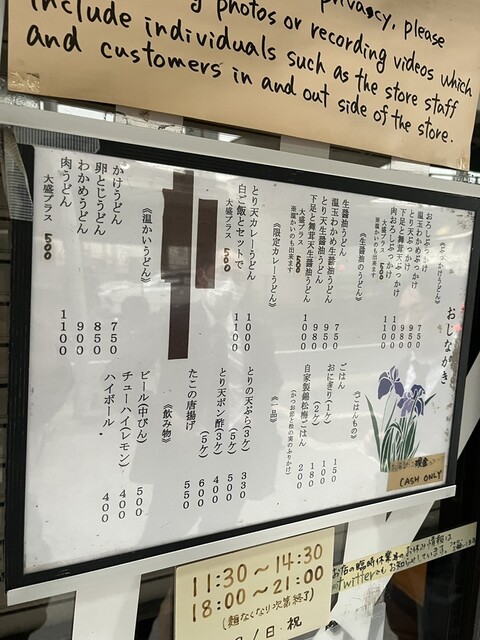 privacy, please
photos or recording videos which
include individuals such as the store staff
and customers in and out side of the store.
おしながき
《ぶっかけうどん》
おろしぶっかけ 750
温玉わかめぶっかけ 950
とり天ぶっかけ 980
下足と舞茸天ぶっかけ 1000
肉おろしぶっかけ 1100
大盛プラス 500
※温かいのも出来ます
《生醤油のうどん》
生醤油うどん 750
温玉わかめ生醤油うどん 950
とり天生醤油うどん 980
下足と舞茸天生醤油うどん 1000
大盛プラス 500
※温かいのも出来ます
《限定カレーうどん》
とり天カレーうどん 1000
白ご飯とセットで 1100
大盛プラス 500
《温かいうどん》
かけうどん 750
卵とじうどん 850
わかめうどん 900
肉うどん 1100
大盛プラス 500
《ごはんもの》
ごはん 150
おにぎり(1ケ) 100
(2ケ) 180
自家製錦松梅ごはん 200
(かつお節と松の実のふりかけ)
《一品》
とりの天ぷら(3ケ) 330
(5ケ) 500
とり天ポン酢(3ケ) 400
(5ケ) 600
たこの唐揚げ 500
《飲み物》
ビール(中びん) 500
チューハイ(レモン) 400
ハイボール 400
現金
CASH ONLY
11:30〜14:30
18:00〜21:00
(麺なくなり次第終了)
日.祝
お店の臨時休業等のお休み情報は
twitterでもお知らせしています。